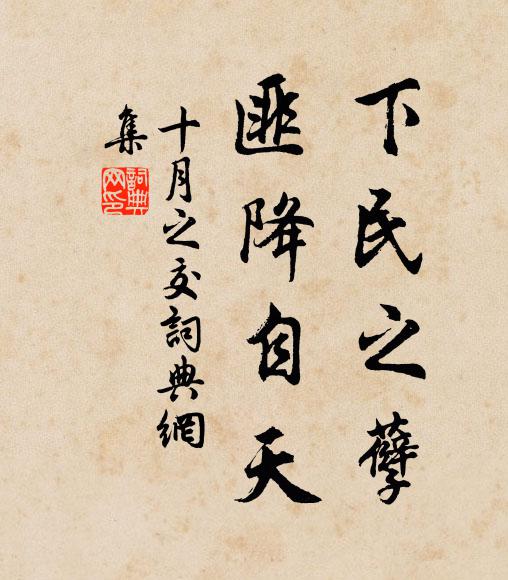 下民之孽
匪降自天
十月之交詞典網
集
詞典网印